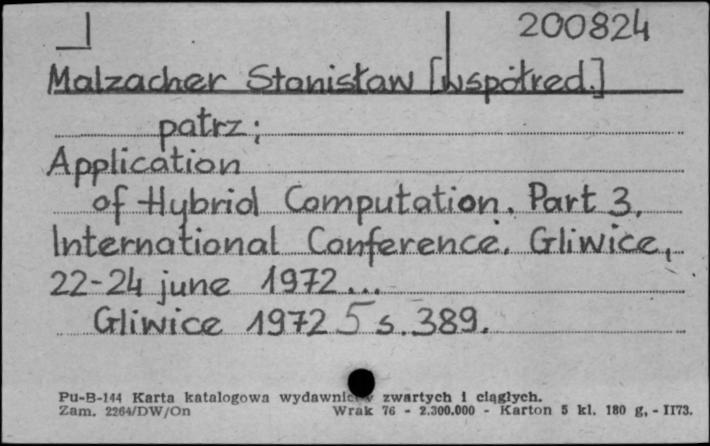 200824
Malzacher Stanisław [współred.]
patrz;
Application
of Hybrid Computation. Part 3,
International Conference. Gliwice,
22-24 june 1972...
Gliwice 1972 5 s. 389.
Pu-B-144 Karta katalogowa wydawnictw zwartych i ciągłych.
Zam. 2264/DW/On Wrak 76 - 2.300.000 - Karton 5 kl. 180 g, - II73.